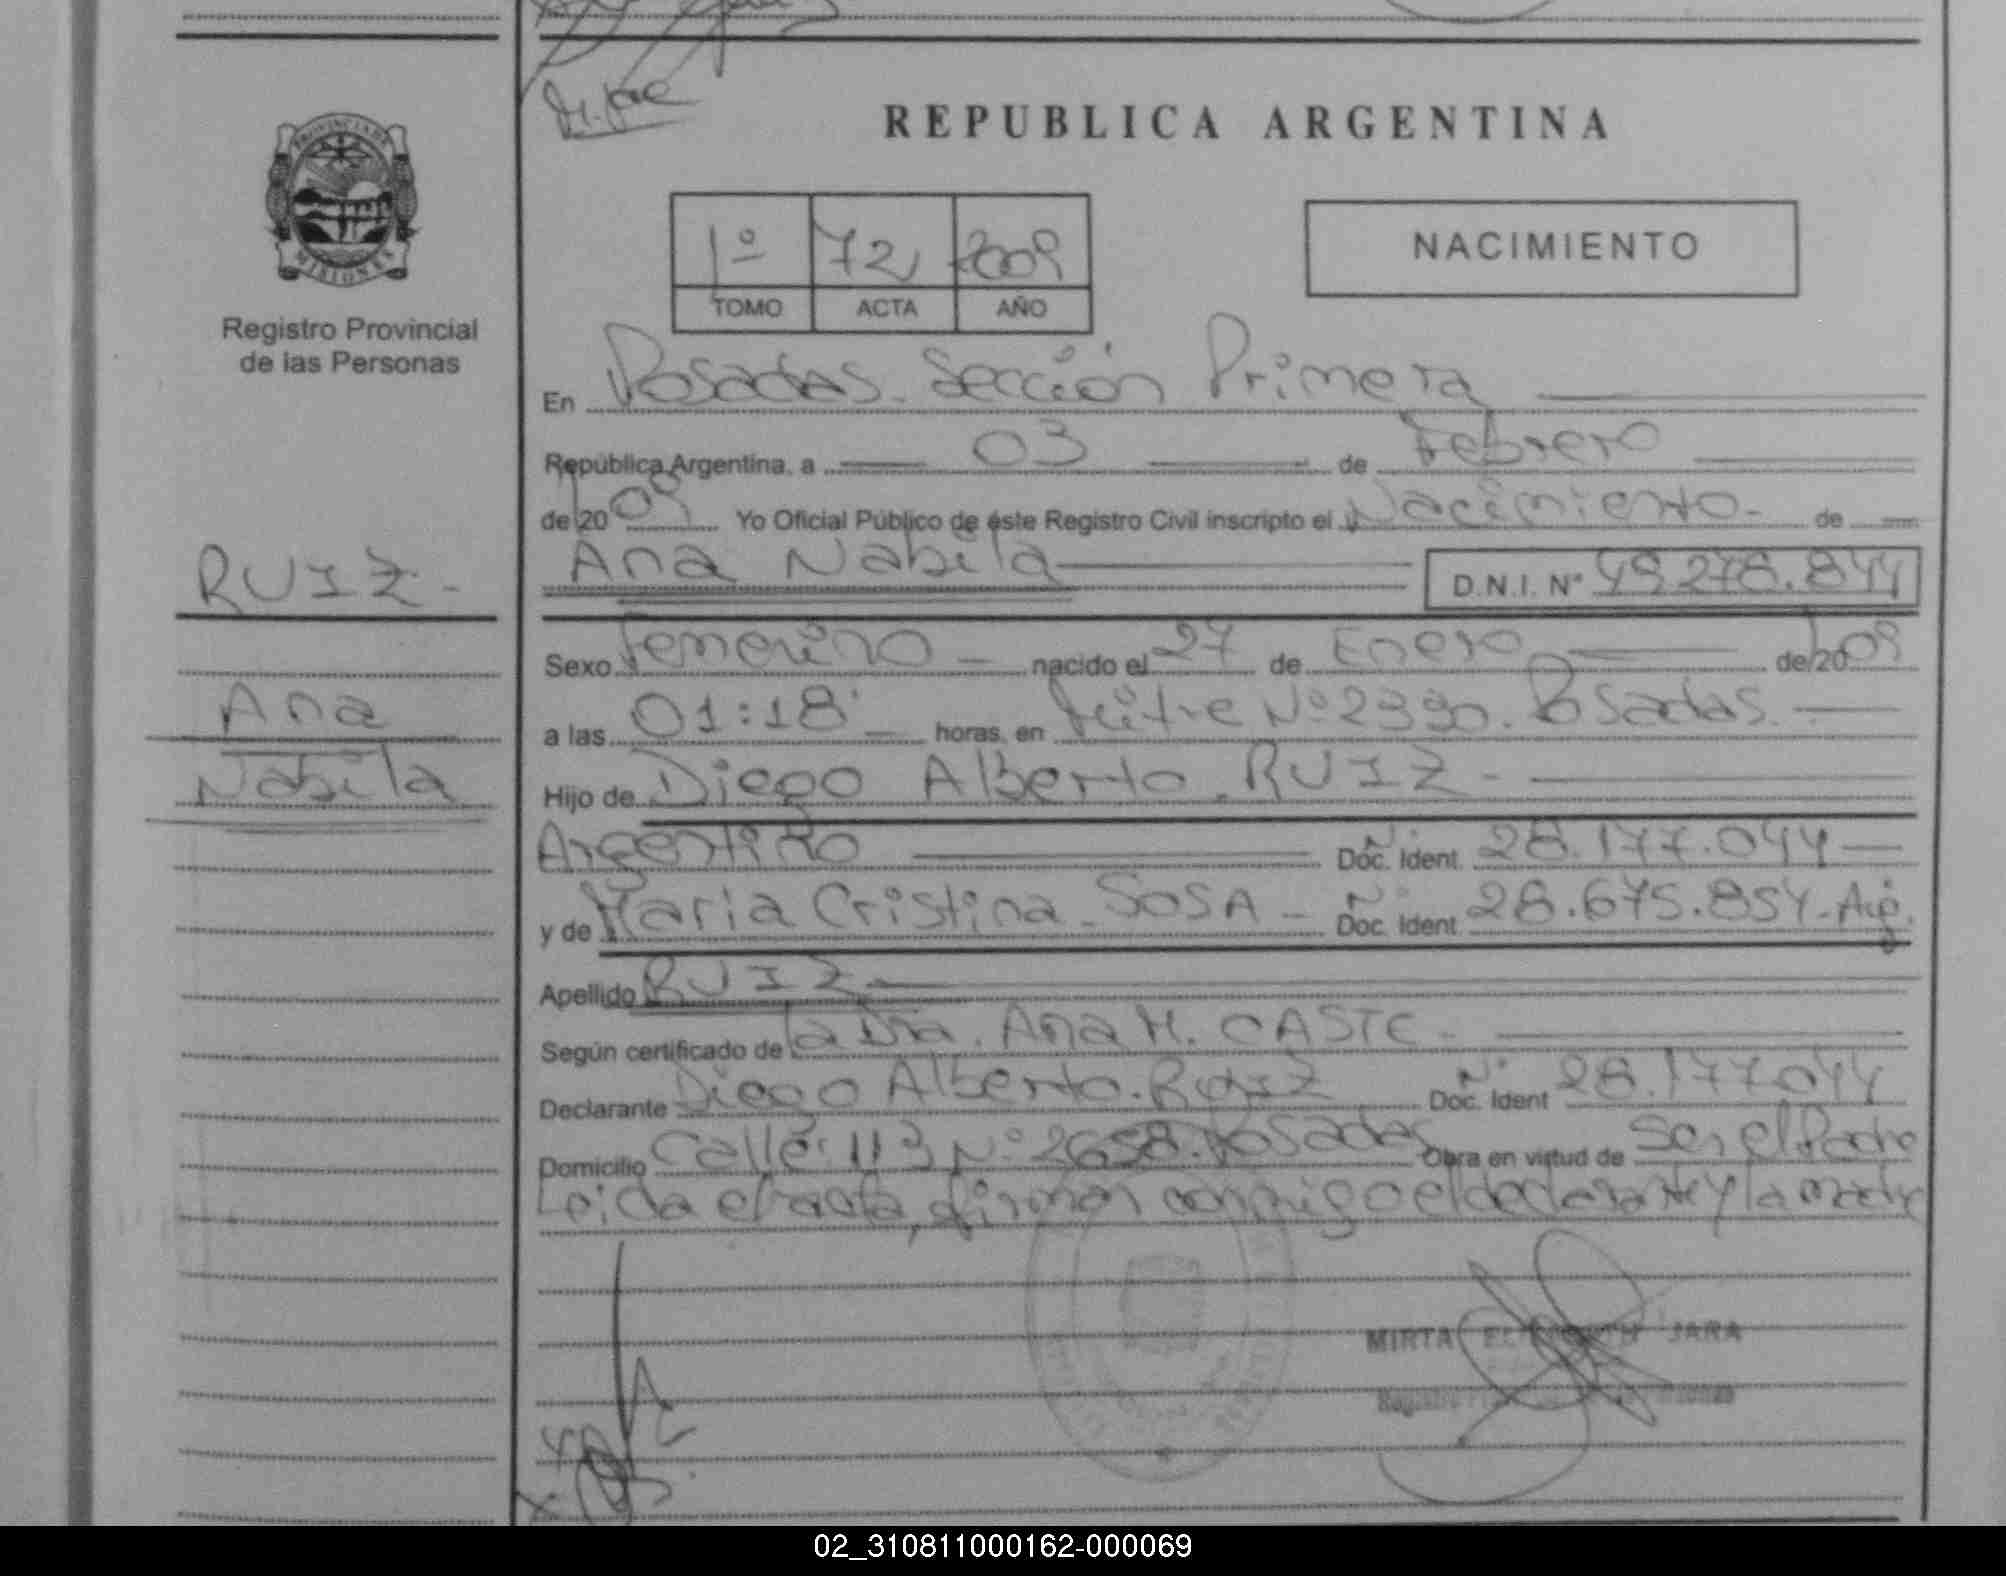 REPUBLICA ARGENTINA
PROVINCIA DE
MISIONES
Registro Provincial
de las Personas
1º 72 2009
TOMO ACTA AÑO
NACIMIENTO
En Posadas. Sección Primera
República Argentina, a 03 de Febrero
de 2009 Yo Oficial Público de éste Registro Civil inscripto el Nacimiento - de
Ana Nabila D.N.I. Nº 49.278.844
RUIZ -
Ana
Nabila
Sexo Femenino nacido el 27 de Enero de 2009
a las 01:18' horas, en Mitre Nº 2390. Posadas.
Hijo de Diego Alberto. RUIZ -
Argentino Doc. Ident. Nº 28.177.044
y de Maria Cristina. SOSA - Doc. Ident. Nº 28.675.854 - Arg.
Apellido RUIZ
Según certificado de la Dra. Ana M. CASTE -
Declarante Diego Alberto. Ruiz Doc. Ident Nº 28.177.044
Domicilio Calle: 113 Nº 2658. Posadas Obra en virtud de ser el Padre
Leida el acta, firman conmigo el declarante y la madre
MIRTA JARA
02_310811000162-000069